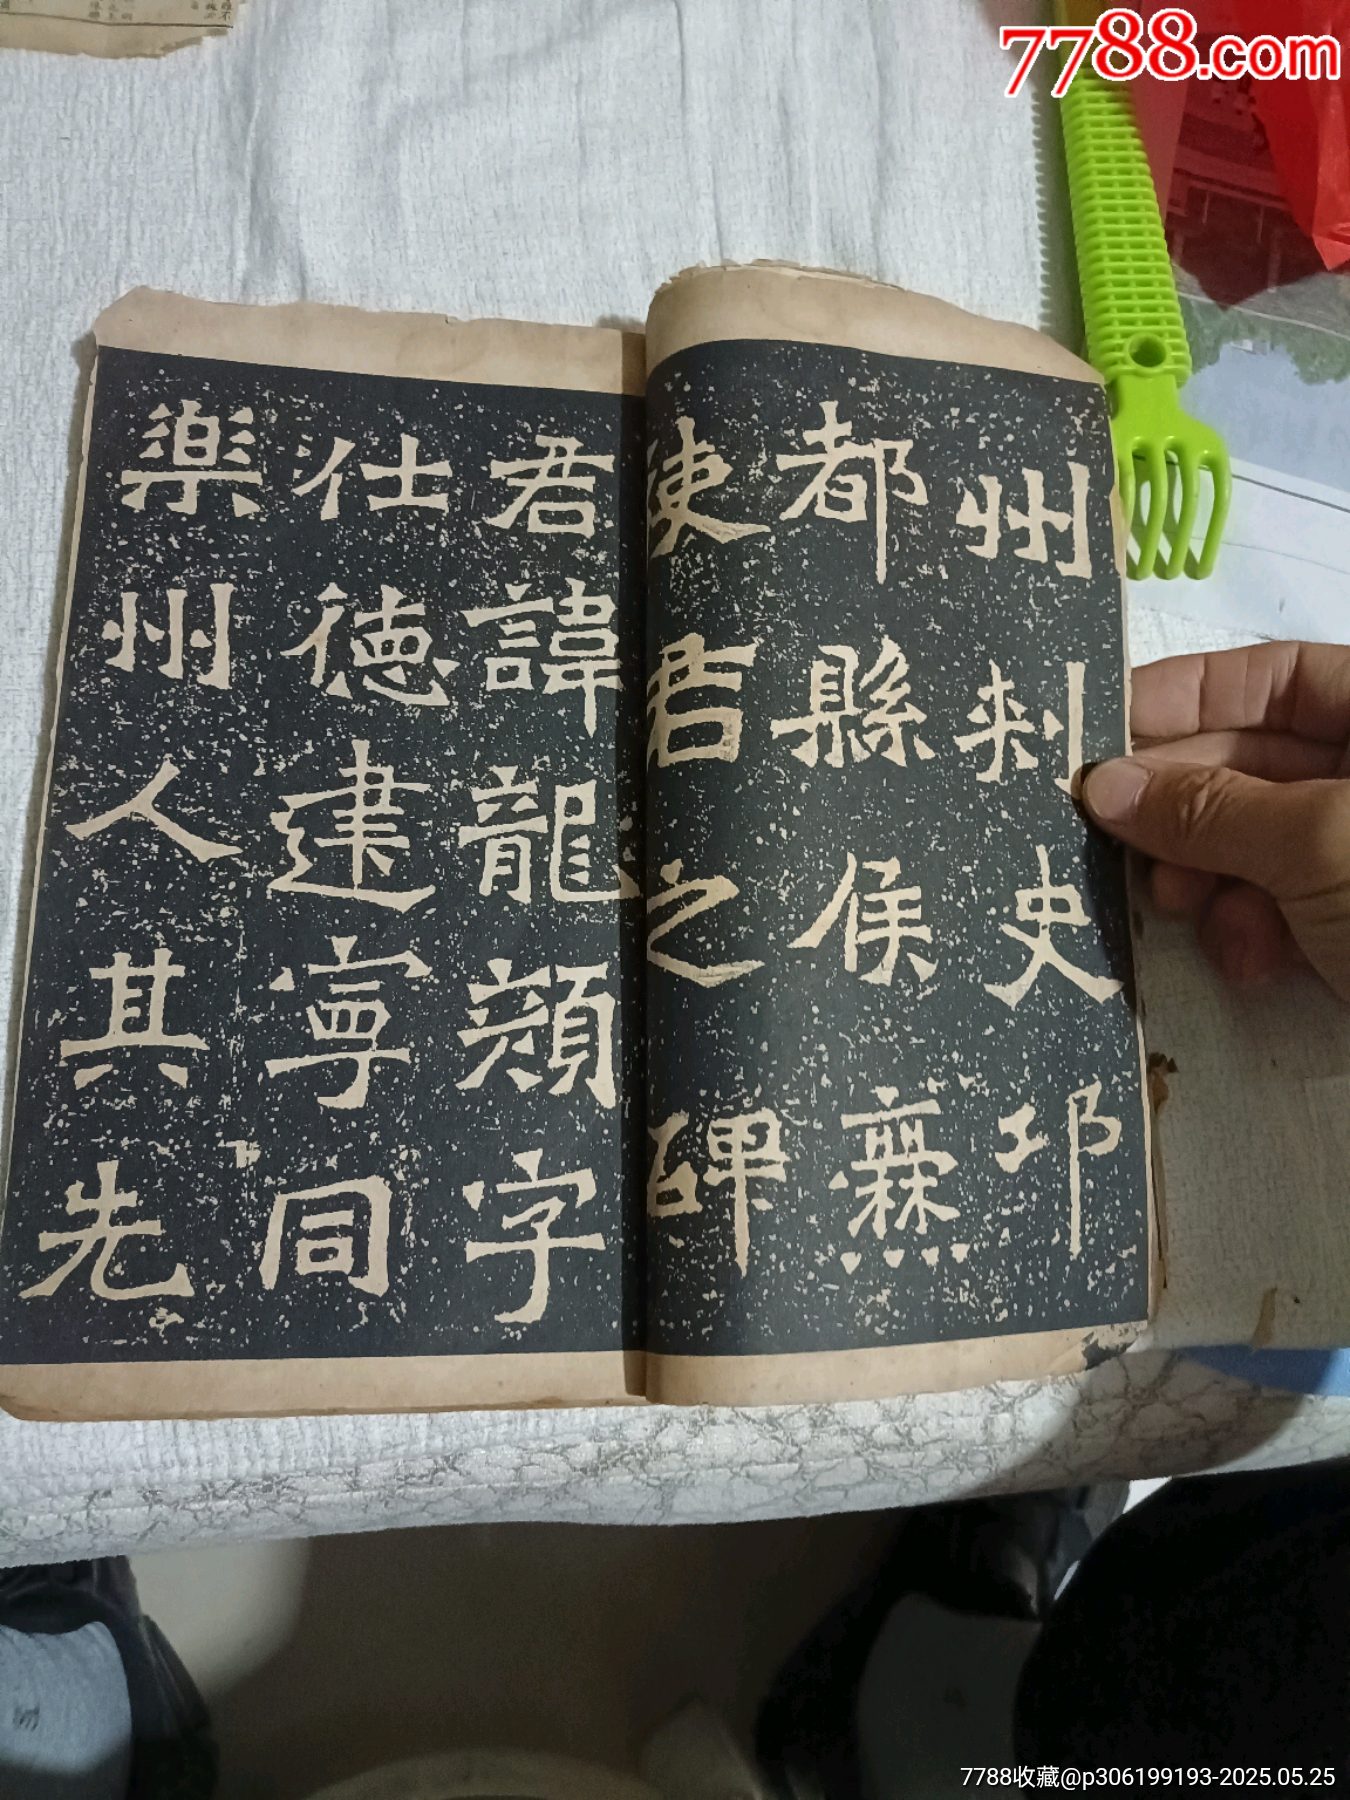 7788.com
州刺史邛
都縣侯爨
使君之碑
君諱龍顏字
仕德建寧同
樂州人其先
7788收藏@p306199193-2025.05.25